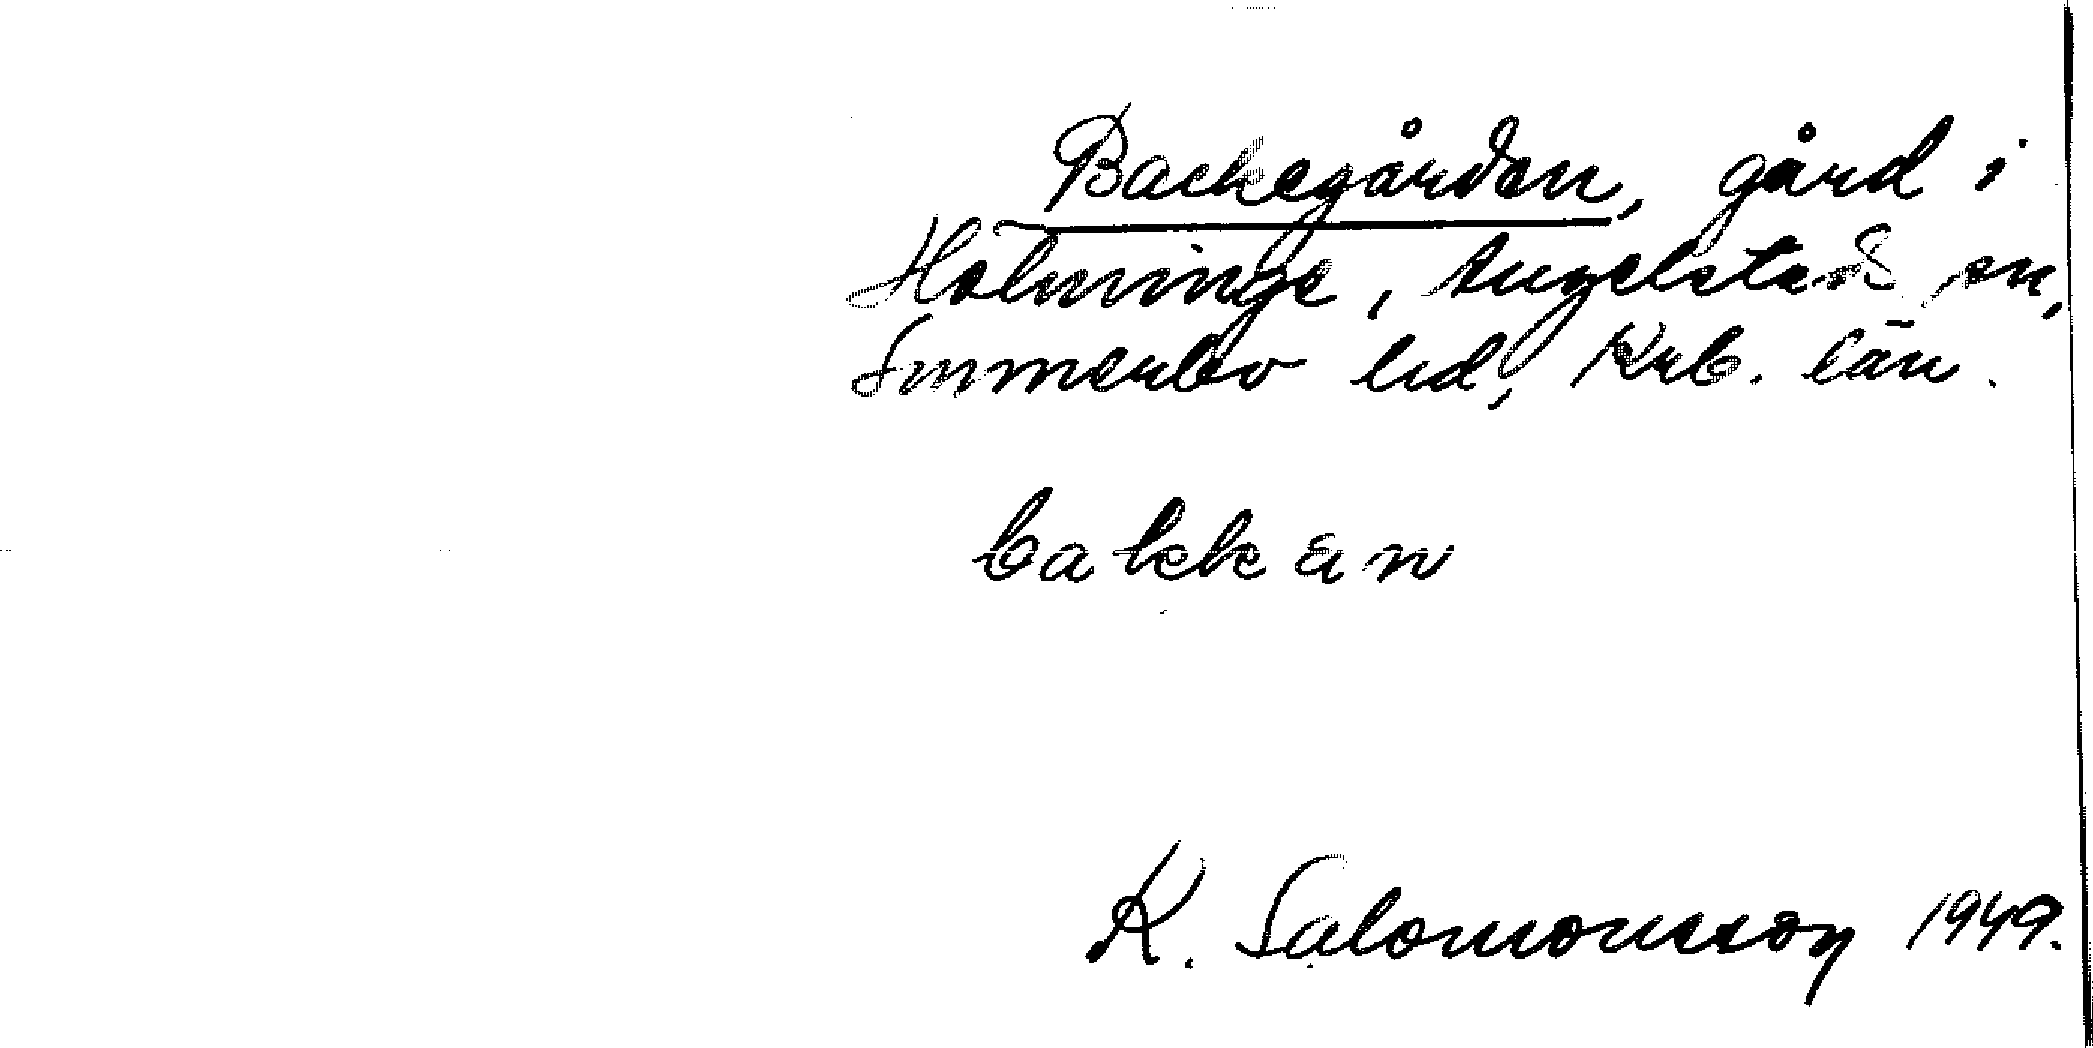 Backegården, gård i
Holminge, Angelstad sn,
Sunnerbo hd, Krb. län.
bakkan
K. Salomonsson 1949.